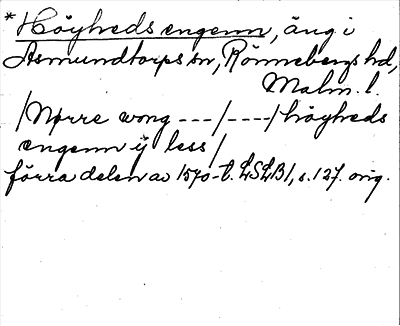 * Höyheds engenn, äng i
Asmundtorps sn, Rönnebergs hd,
Malm. l.
/Nørre wong ---/----/höyheds
engenn ij less/
förra delen av 1570-t. LSLB1, s. 127. orig.